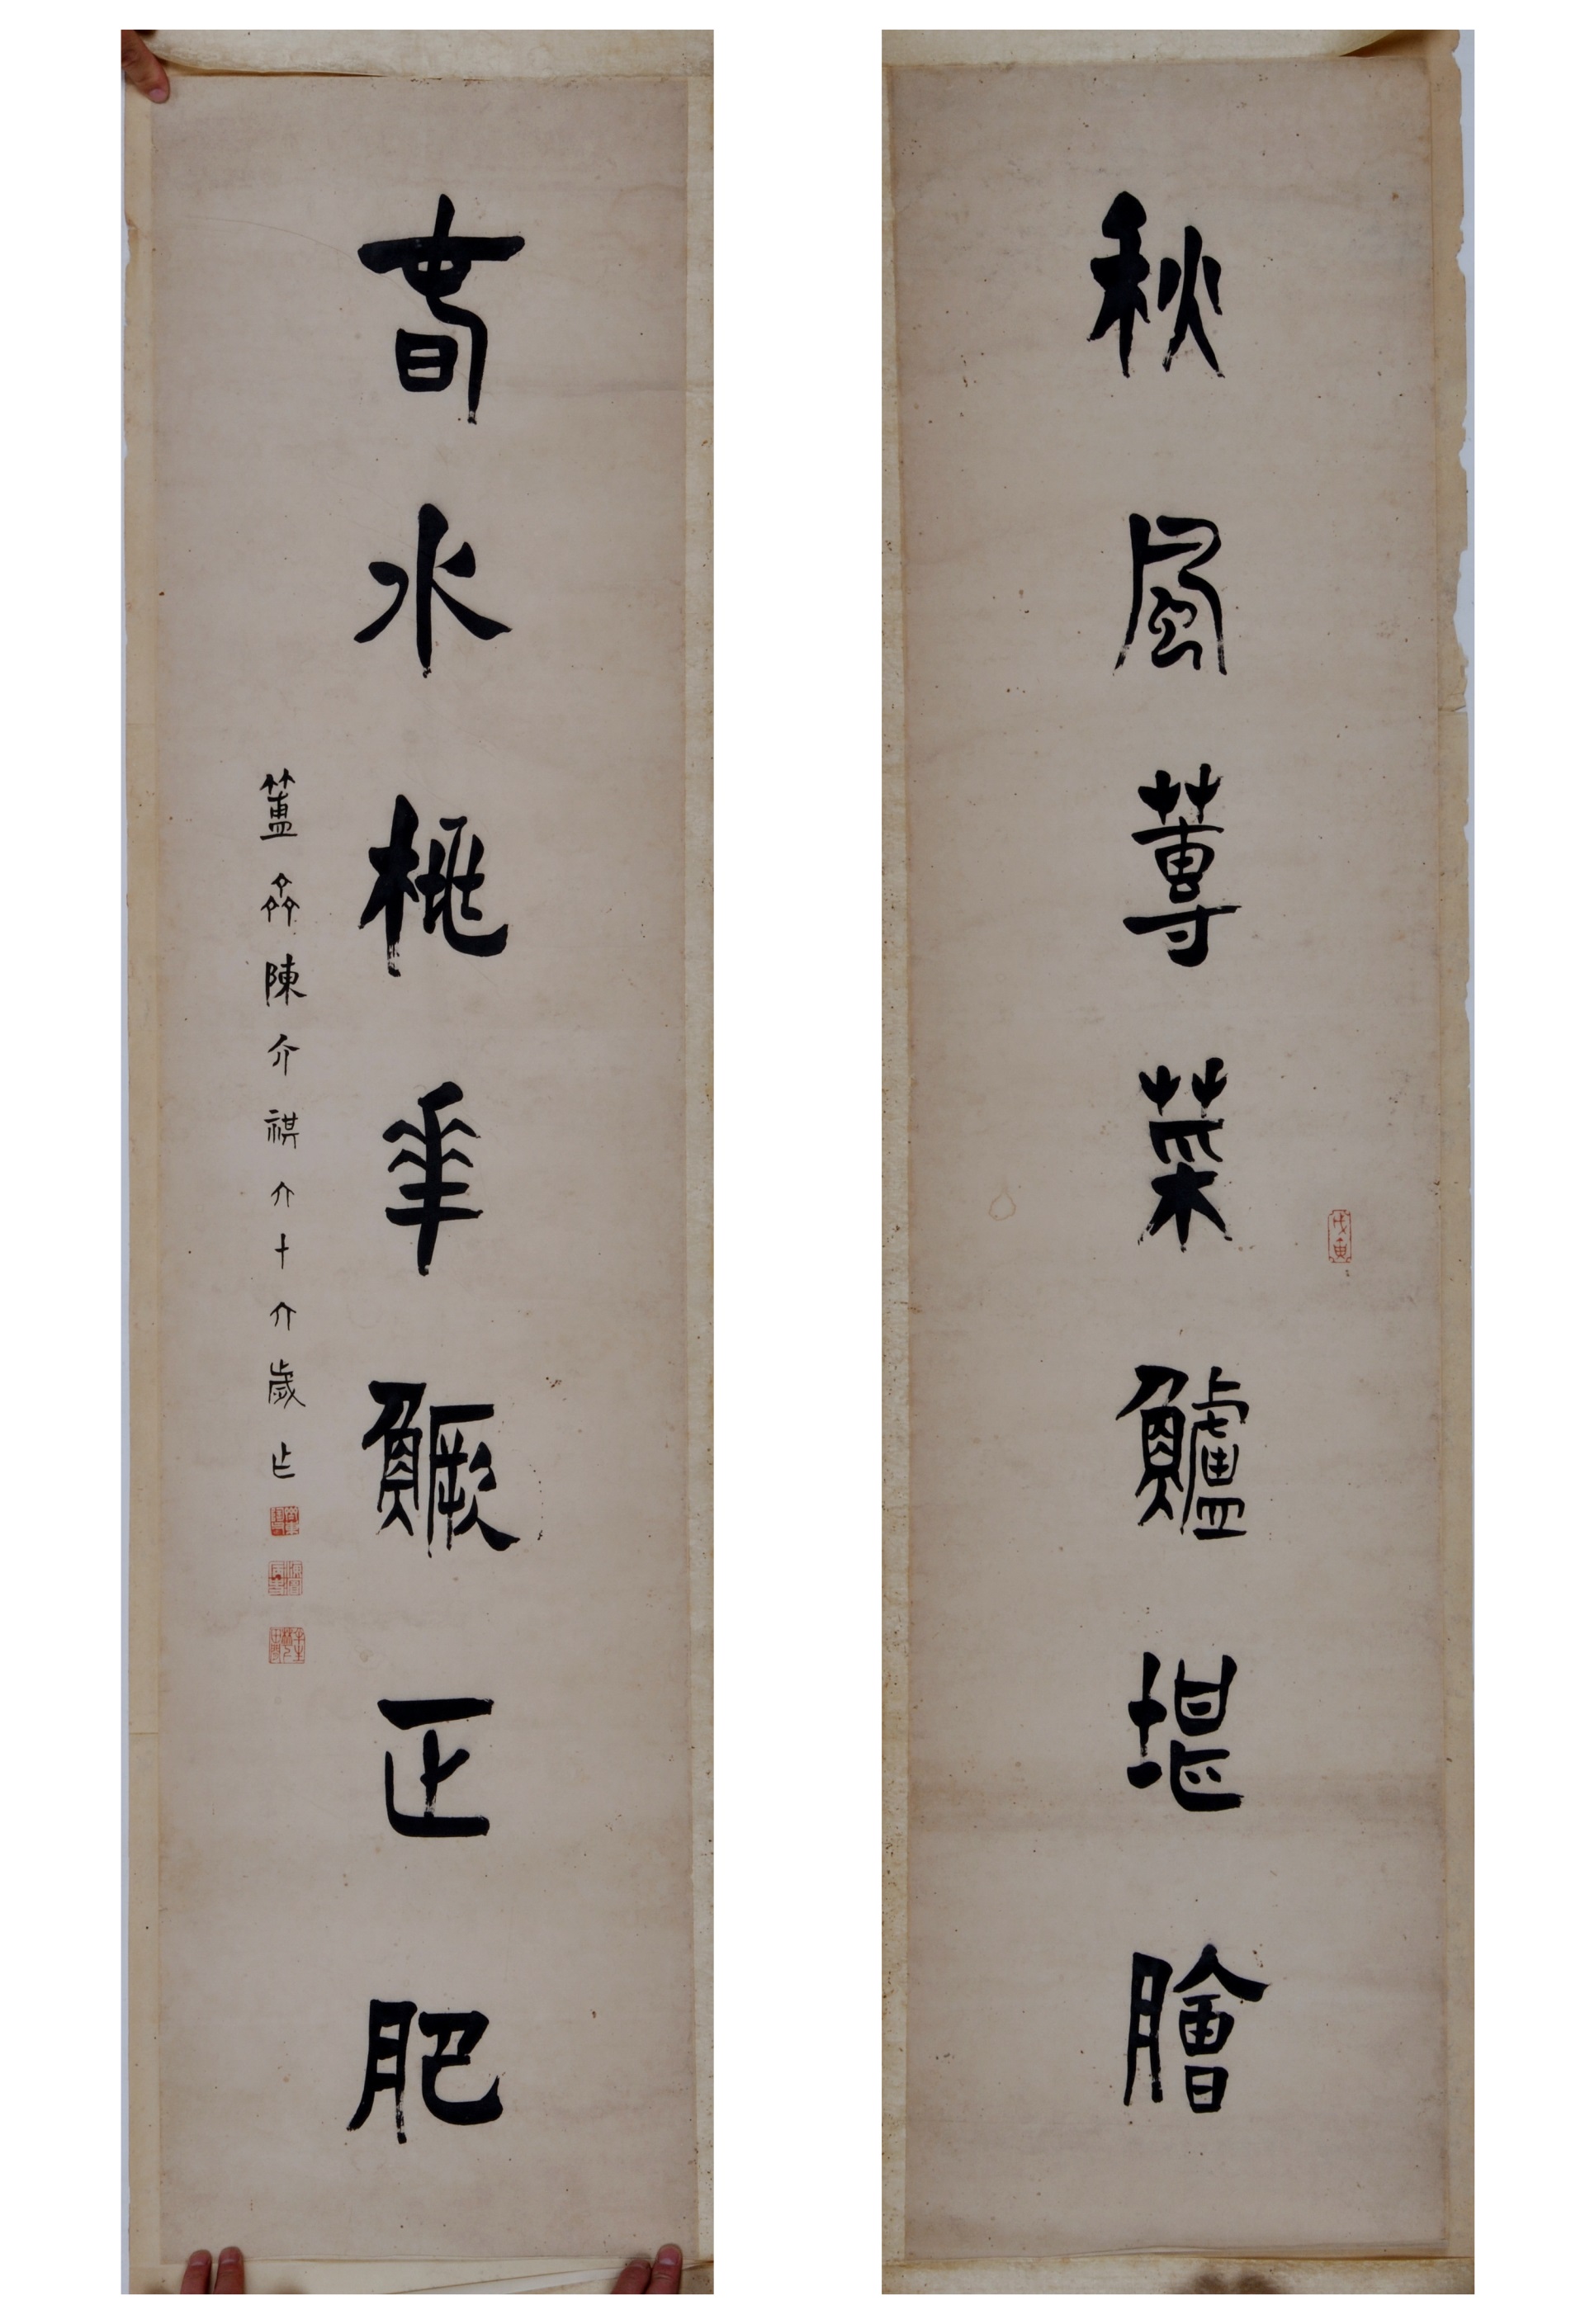 秋風蓴菜鱸堪膾
戊寅
春水桃華鱖正肥
簠齋陳介祺六十六歲作